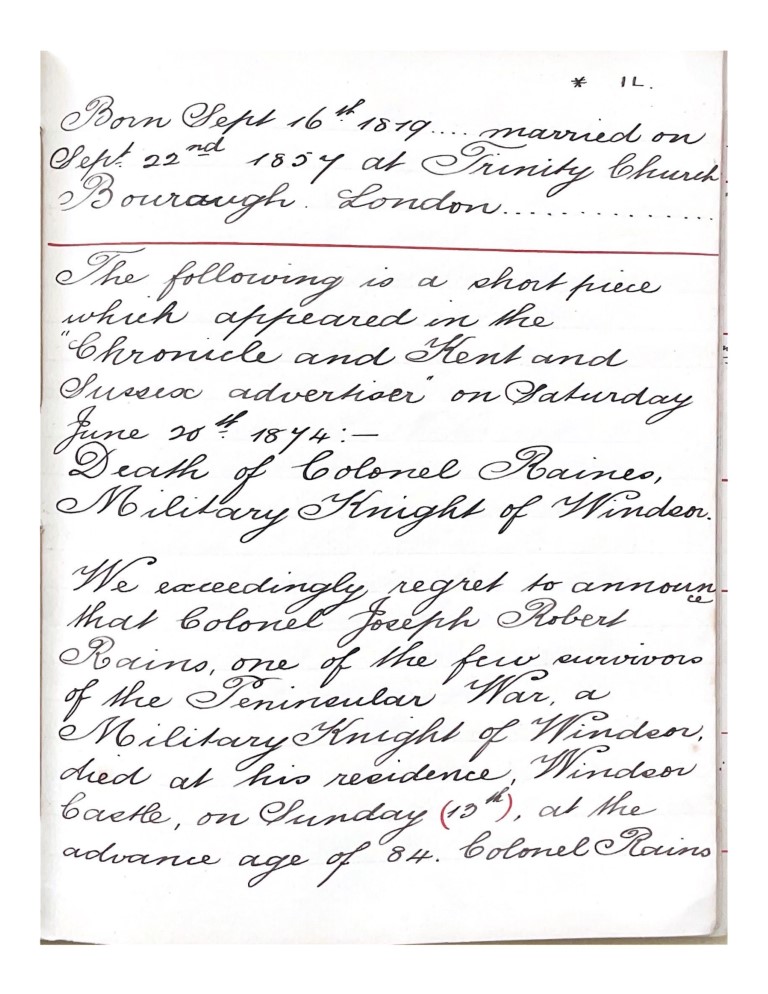 * 1L.
Born Sept 16th 1819.... married on
Sept. 22nd 1857 at Trinity Church
Bouraugh. London..............
The following is a short piece
which appeared in the
"Chronicle and Kent and
Sussex advertiser" on Saturday
June 20th 1874:—
Death of Colonel Raines,
Military Knight of Windsor.
We exceedingly regret to announce
that Colonel Joseph Robert
Rains, one of the few survivors
of the Peninsular War, a
Military Knight of Windsor,
died at his residence, Windsor
Castle, on Sunday (13th), at the
advance age of 84. Colonel Rains